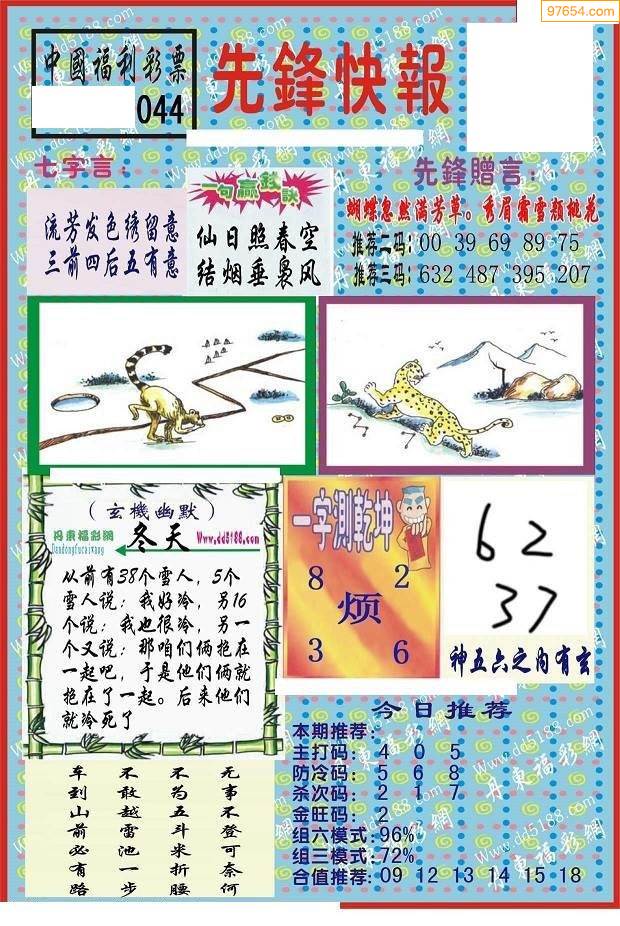 97654.com
中國福利彩票
044
先鋒快報
七字言：
流芳发色绣留意
三前四后五有意
一句赢钱訣
仙日照春空
结烟垂袅风
先鋒贈言：
蝴蝶忽然满芳草。秀眉霜雪颜桃花
推荐二码：00 39 69 89 75
推荐三码：632 487 395 207
（玄機幽默）
丹東福彩網
Dandongfucaiwang
冬天
Www.dd5188.com
从前有38个雪人，5个
雪人说：我好冷，另16
个说：我也很冷，另一
个又说：那咱们俩抱在
一起吧，于是他们俩就
抱在了一起。后来他们
就冷死了
一字测乾坤
8 2
烦
3 6
62
37
神五六之内有玄
今日推荐
本期推荐：
主打码：4 0 5
防冷码：5 6 8
杀次码：2 1 7
金旺码：2
组六模式：96%
组三模式：72%
合值推荐：09 12 13 14 15 18
车到山前必有路
不敢越雷池一步
不为五斗米折腰
无事不登可奈何